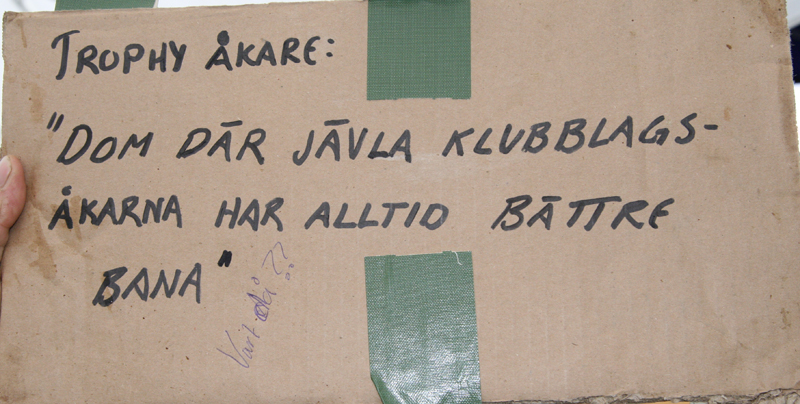 TROPHY ÅKARE:
"DOM DÄR JÄVLA KLUBBLAGS-
ÅKARNA HAR ALLTID BÄTTRE
BANA"
Vart då??